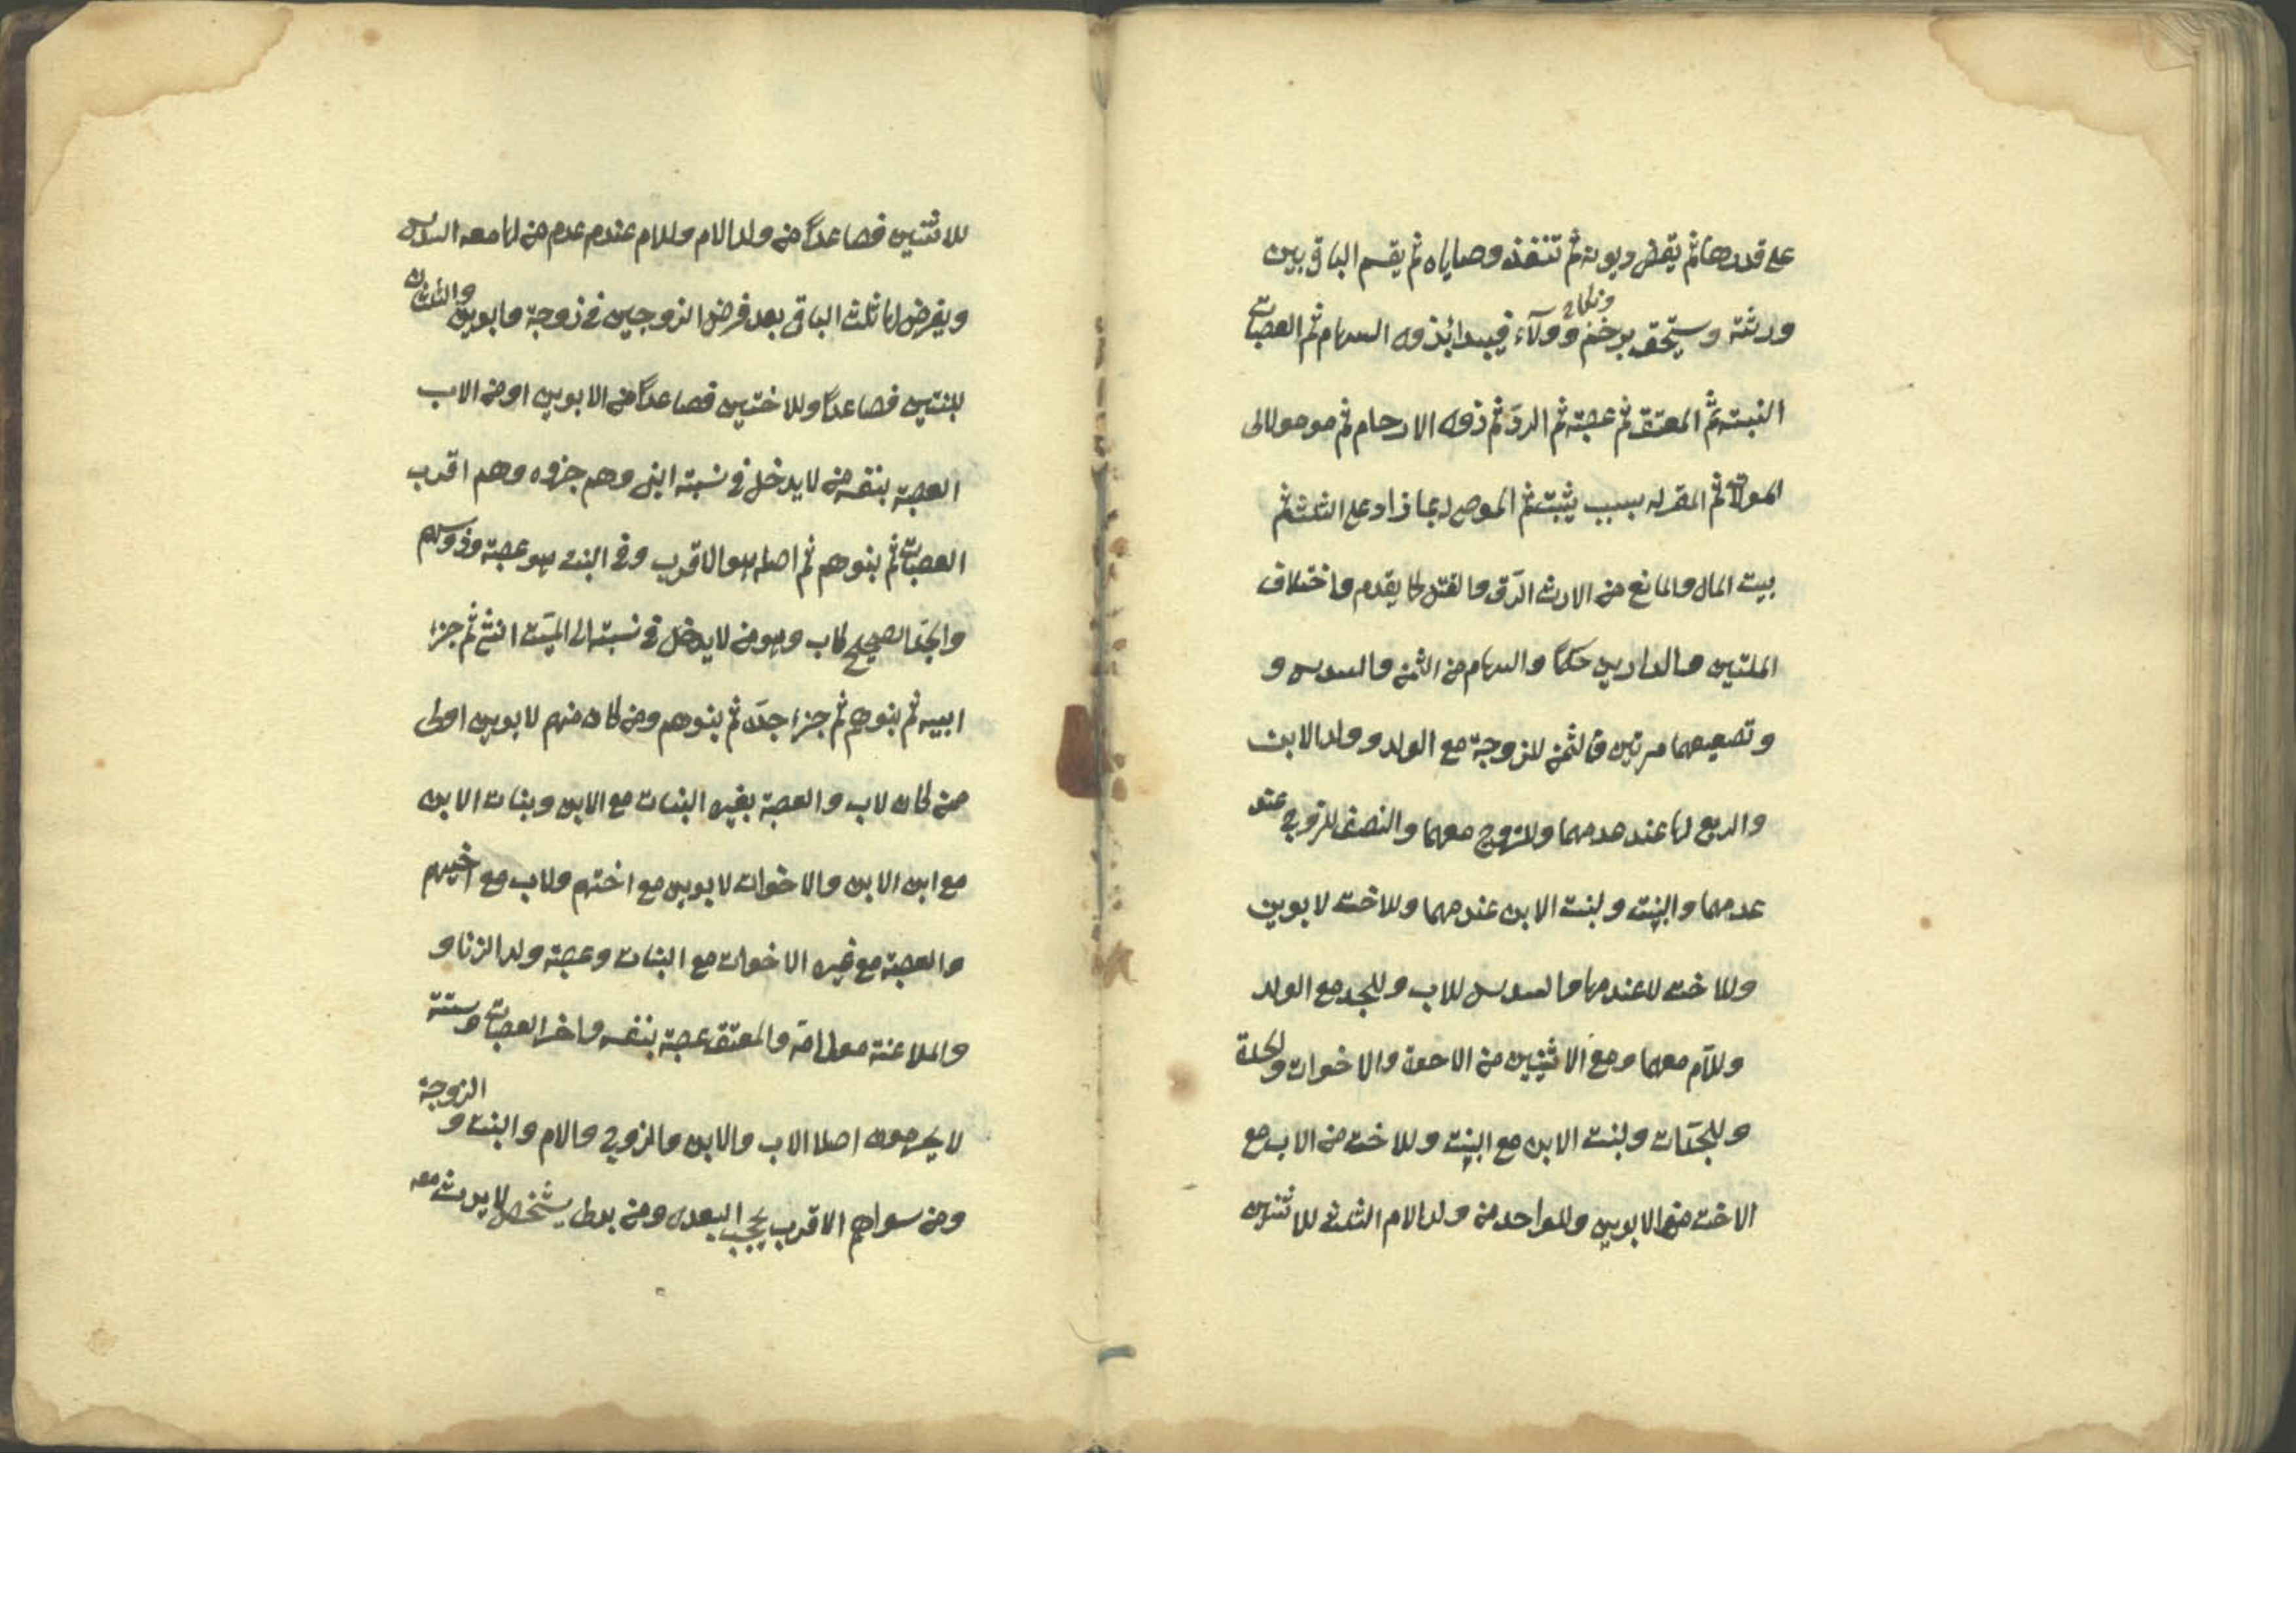 على قدرها ثم يقضى ديونه ثم تنفذ وصاياه ثم يقسم الباقي بين
ورثته ويستحق برحم ونكاح وولاء فيبدا بذوى السهام ثم العصبات
النسبية ثم المعتق ثم عصبته ثم الرد ثم ذوى الارحام ثم مولى
الموالاة ثم المقر له بسبب يثبت ثم الموصى له بما زاد على الثلث ثم
بيت المال والمانع من الارث الرق والقتل كما يقدم واختلاف
الملتين والدارين حكما والسهام من الثمن والسدس و
وتضعيفهما مرتين فالثمن للزوجة مع الولد وولد الابن
والربع لها عند عدمهما وللزوج معهما والنصف للزوج عند
عدمهما والبنت ولبنت الابن عند عدمها وللاخت لابوين
وللاخت لاب عندمها والسدس للاب وللجد مع الولد
وللام معهما ومع الاثنين من الاخوة والاخوات وللجدة
وللجدات ولبنت الابن مع البنت وللاخت من الاب مع
الاخت من الابوين وللواحد من ولد الام الثلث للاثنين
للاثنين فصاعدا من ولد الام وللام عند عدم من لها معه السدس
ويفرض لها ثلث الباقي بعد فرض الزوجين في زوجة وابوين والثلثان
لبنتين فصاعدا وللاختين فصاعدا من الابوين او من الاب
العصبة بنفسه من لا يدخل في نسبته انثى وهم جزوه وهم اقرب
العصبات ثم بنوهم ثم اصله هو الاقرب وفي البنت هو عصبة وذو سهم
والجد الصحيح كاب وهو من لا يدخل في نسبته الى الميت انثى ثم جزء
ابيه ثم بنوهم ثم جزء جده ثم بنوهم ومن كان منهم لابوين اولى
ممن كان لاب والعصبة بغيره البنات مع الابن وبنات الابن
مع ابن الابن والاخوات لابوين مع اختهم ولاب مع اخيهم
والعصبة مع غيره الاخوات مع البنات وعصبة ولد الزنا و
والملاعنة مولى امه والمعتق عصبة بنفسه واخر العصبات وستة
لا يحرمون اصلا الاب والابن والزوج والام والبنت و الزوجة
ومن سواهم الاقرب يحجب البعدى ومن يدلى بشخص لا يرث معه